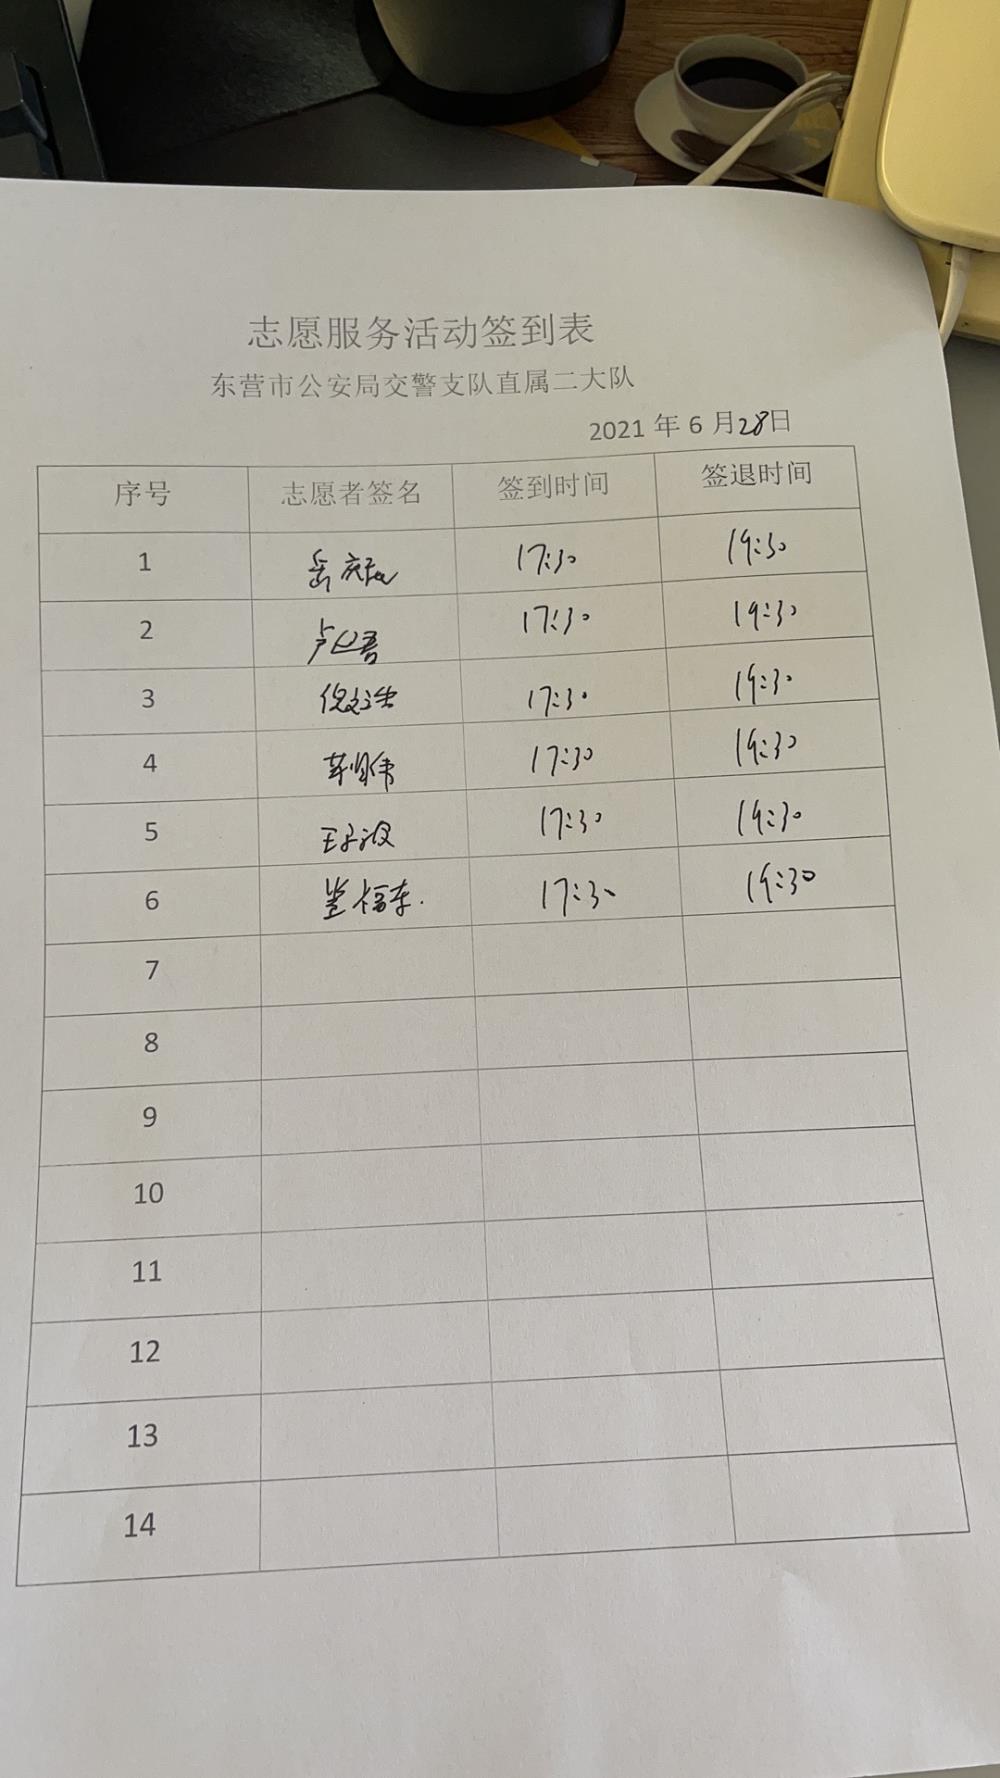 志愿服务活动签到表
东营市公安局交警支队直属二大队
2021 年 6 月28日
序号 志愿者签名 签到时间 签退时间
1 17:30 19:30
2 17:30 19:30
3 17:30 19:30
4 17:30 19:30
5 王 波 17:30 19:30
6 17:30 19:30
7
8
9
10
11
12
13
14